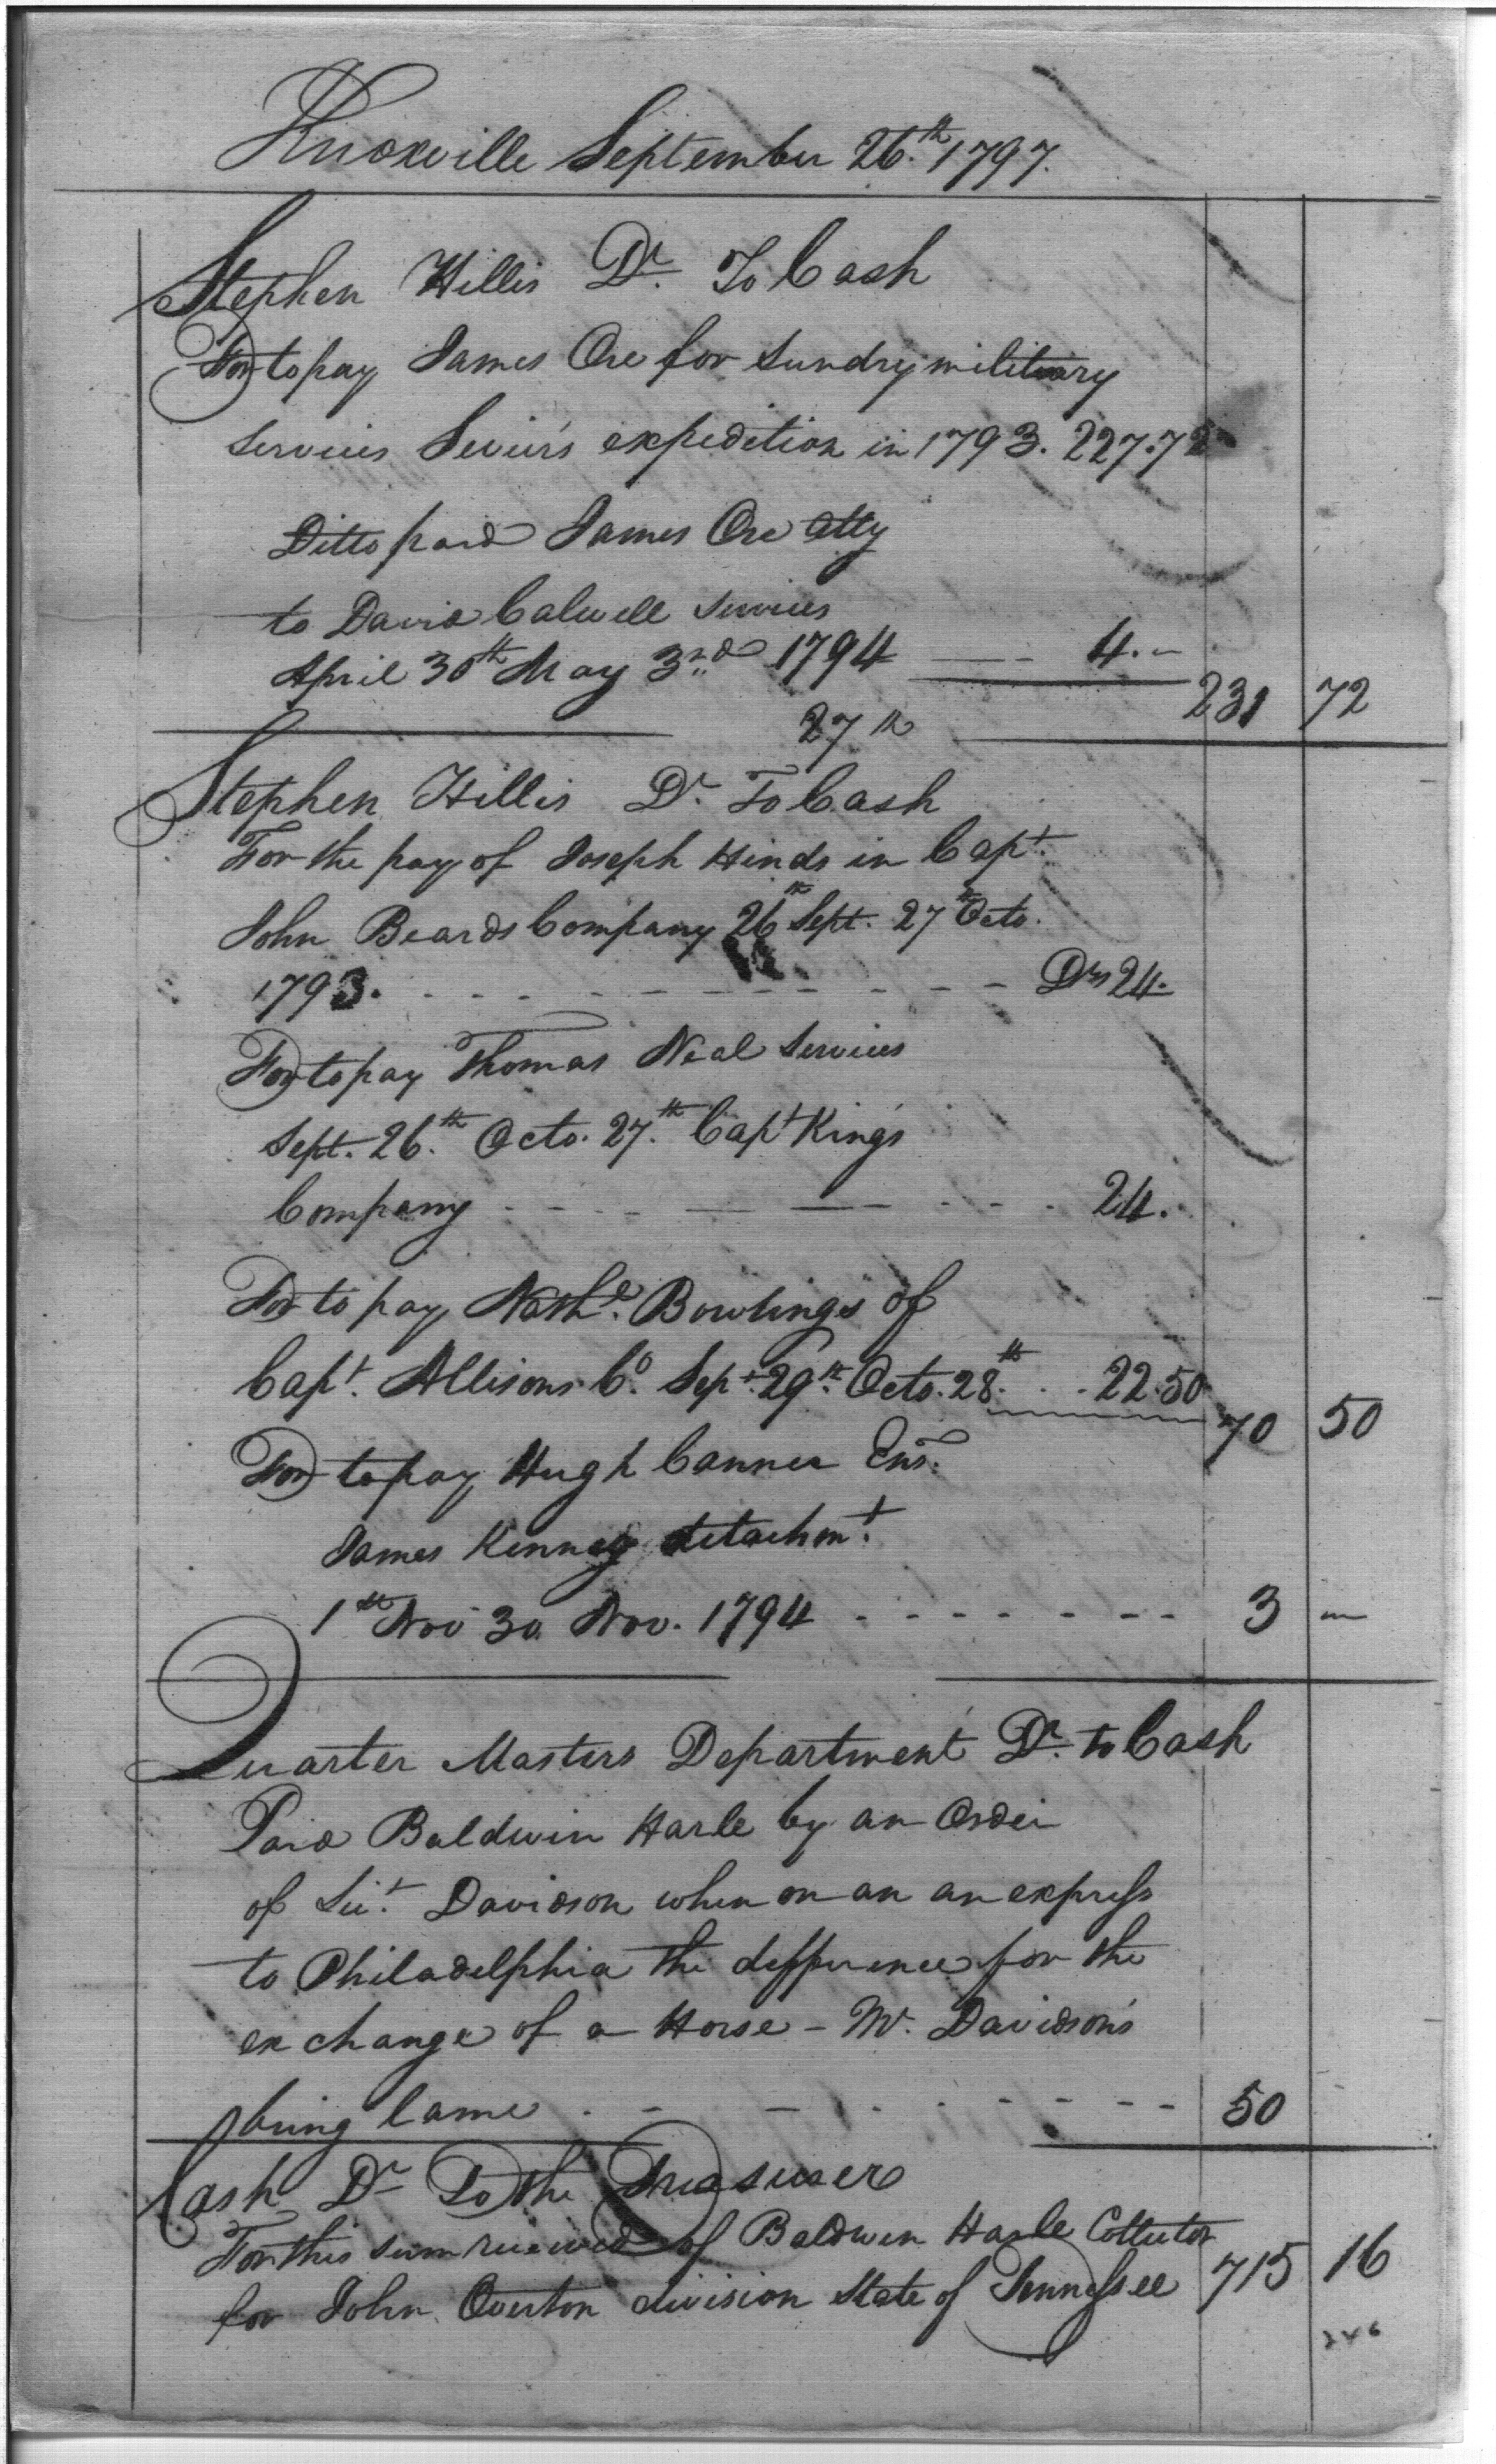 Knoxville September 26.th 1797.
Stephen Hillis Dr. To Cash
For to pay James Ore for Sundry military
services Seviers expedition in 1793. 227.72
Ditto paid James Ore Atty
to David Calwell Services
April 30th May 3rd 1794 — 4.–
231 72
27th
Stephen Hillis Dr. To Cash
For the pay of Joseph Hinds in Capt.
John Beards Company 26th Sept. 27th Octo.
1793. - - - - - - - - - - Drs 24.
For to pay Thomas Neal Services
Sept. 26.th Octo. 27.th Capt King's
Company - - - - - - - - 24.
For to pay Nathl. Bowlings of
Capt. Allisons Co. Sept. 29th. Octo. 28.th . . 22.50
70 50
For to pay Hugh Cannes Ens.
James Kenney detachmt.
1st Nov 30 Nov. 1794 - - - - - - - 3 —
Quarter Masters Department Dr. to Cash
Paid Baldwin Harle by an Order
of Lit. Davidson when on an an express
to Philadelphia the difference for the
exchange of a Horse – Mr. Davidson's
being lame - - - - - - - - 50
Cash Dr To the Treasurer
For this sum received of Baldwin Harle Collector
for John Overton division State of Tennessee 715 16